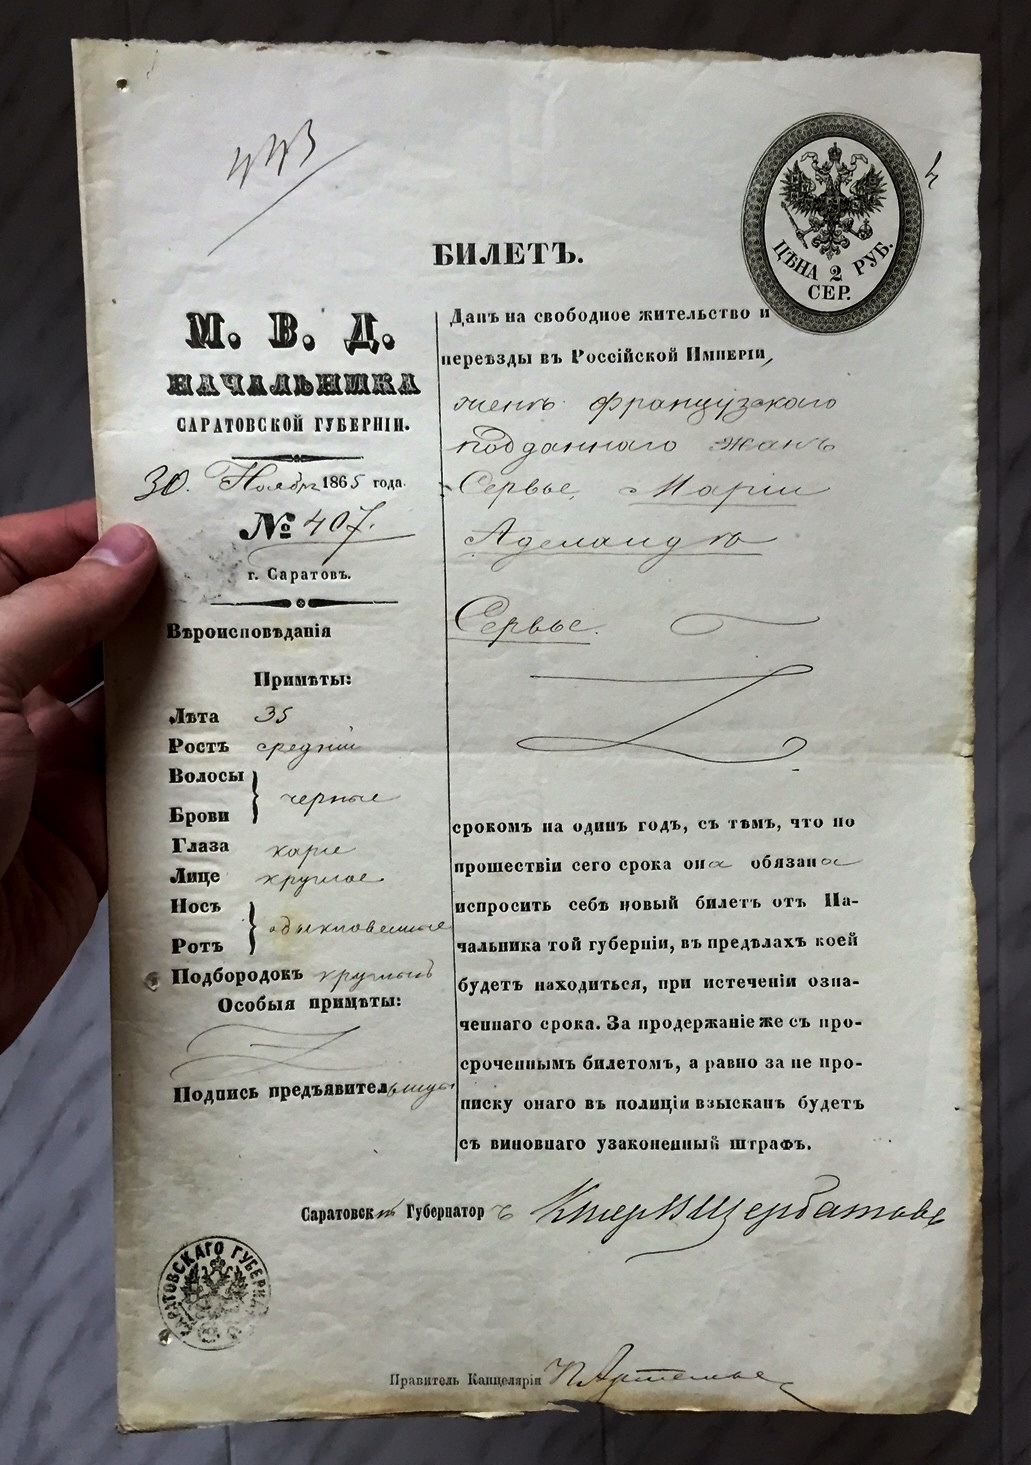 443
4
ЦѢНА 2 РУБ.
СЕР.
БИЛЕТЪ.
М. В. Д.
НАЧАЛЬНИКА
САРАТОВСКОЙ ГУБЕРНІИ.
30. Ноября 1865 года.
№ 407.
г. Саратовъ.
Вѣроисповѣданія
Примѣты:
Лѣта 35
Ростъ средній
Волосы
Брови
черные
Глаза каріе
Лице круглое
Носъ
Ротъ
обыкновенные
Подбородокъ круглый
Особыя примѣты:
Подпись предъявительницы
Данъ на свободное жительство и
переѣзды въ Россійской Имперіи,
женѣ французскаго
подданнаго Жанъ
Сервье, Маріи
Аделаидѣ
Сервье.
срокомъ на одинъ годъ, съ тѣмъ, что по
прошествіи сего срока она обязана
испросить себѣ новый билетъ отъ На-
чальника той губерніи, въ предѣлахъ коей
будетъ находиться, при истеченіи озна-
ченнаго срока. За продержаніе же съ про-
сроченнымъ билетомъ, а равно за не про-
писку онаго въ полиціи взысканъ будетъ
съ виновнаго узаконенный штрафъ.
Саратовскій Губернаторъ Щербатовъ
САРАТОВСКАГО ГУБЕРНА
Правитель Канцеляріи